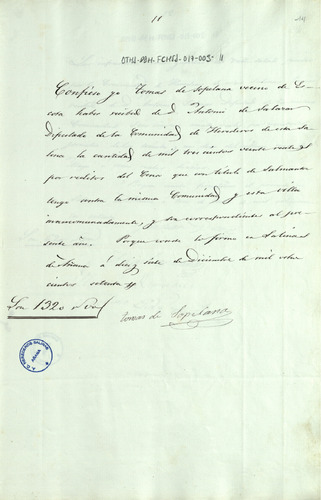 11
OTHA-DAH-FCHSA-017-005-11
Confieso yo Tomas de Sopelana vecino de
cota haber recibido de D. Antonio de Salazar
Diputado de la Comunidad de Herederos de esta
la cantidad de mil trescientos veinte
por reditos del Censo que con titulo de Salmanton
tengo contra la misma Comunidad y esta villa
mancomunadamente, y son correspondientes al pre-
sente año. Porque conste lo firmo en Salinas
de Añana á diez siete de Diciembre de mil ocho
cientos setenta
Son 1320
Tomas de Sopelana
AÑANA